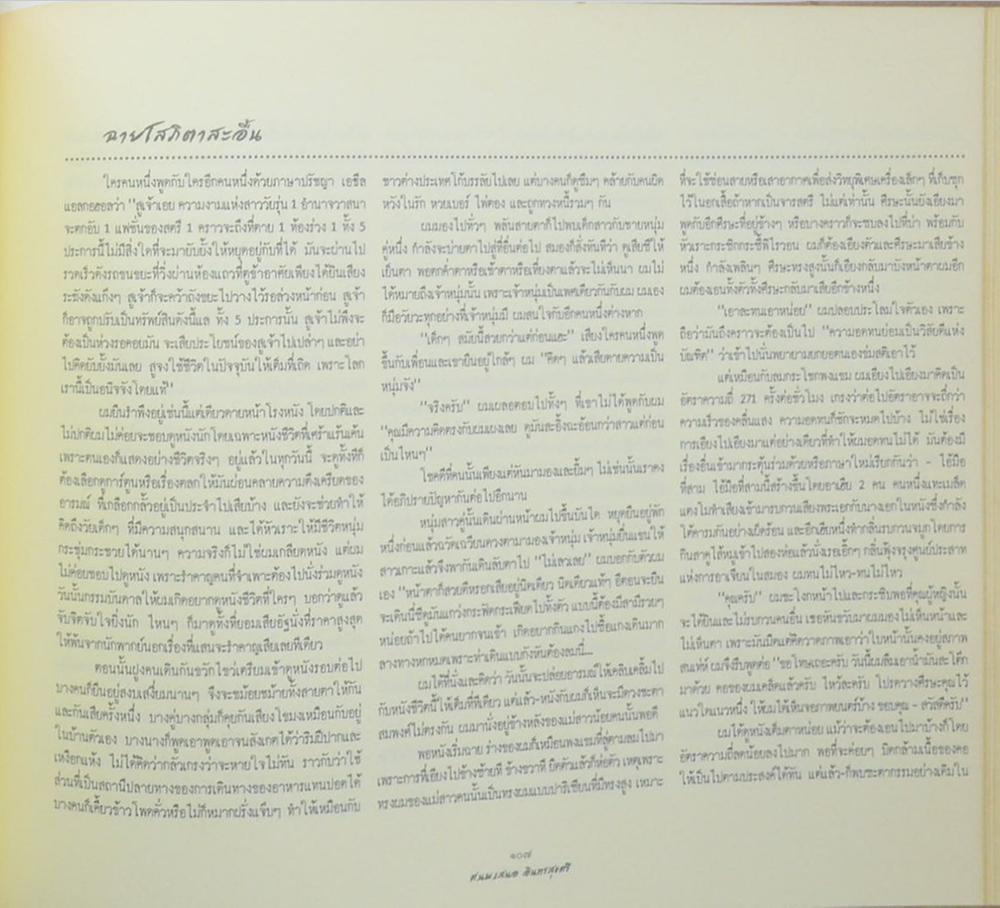 ฉายโสภิตาสะอื้น
ใครคนหนึ่งพูดกับใครอีกคนหนึ่งด้วยภาษาปรัชญา เอธิล
แอลกอฮอลว่า "สูเจ้าเอย ความงามแห่งสาววัยรุ่น 1 อำนาจวาสนา
จะตกอับ 1 แฟชั่นของสตรี 1 คราวจะถึงที่ตาย 1 ท้องร่วง 1 ทั้ง 5
ประการนี้ไม่มีสิ่งใดที่จะมายับยั้งให้หยุดอยู่กับที่ได้ มันจะผ่านไป
รวดเร็วดังรถขนขยะที่วิ่งผ่านห้องแถวที่ตูข้าอาศัยเพียงได้ยินเสียง
ระฆังดังแก๊งๆ สูเจ้าก็จะคว้าถังขยะไปวางไว้รอล่วงหน้าก่อน สูเจ้า
ก็อาจถูกปรับเป็นทรัพย์สินดังนี้แล ทั้ง 5 ประการนั้น สูเจ้าไม่พึงจะ
ต้องเป็นห่วงรอคอยมัน จะเสียประโยชน์ของสูเจ้าไปเปล่าๆ และอย่า
ไปคิดยับยั้งมันเลย สูจงใช้ชีวิตในปัจจุบันให้เต็มที่เถิด เพราะโลก
เรานี้เป็นอนิจจังโดยแท้"
ผมยืนรำพึงอยู่เช่นนี้แต่เดียวดายหน้าโรงหนัง โดยปกติและ
ไม่ปกติผมไม่ค่อยจะชอบดูหนังนัก โดยเฉพาะหนังชีวิตที่เคร้าแร้นเค้น
เพราะตนเองก็แสดงอย่างชีวิตจริงๆ อยู่แล้วในทุกวันนี้ จะดูทั้งทีก็
ต้องเลือกดูการ์ตูนหรือเรื่องตลกให้มันผ่อนคลายความตึงเครียดของ
อารมณ์ ที่เกลือกกลั้วอยู่เป็นประจำไปเสียบ้าง และยังจะช่วยทำให้
คิดถึงวัยเด็กๆ ที่มีความสนุกสนาน และได้หัวเราะให้มีชีวิตหนุ่ม
กระชุ่มกระชวยได้นานๆ ความจริงก็ไม่ใช่ผมเกลียดหนัง แต่ผม
ไม่ค่อยชอบไปดูหนัง เพราะรำคาญคนที่จำเพาะต้องไปนั่งร่วมดูหนัง
วันนั้นกรรมบันดาลให้ผมเกิดอยากดูหนังชีวิตที่ใครๆ บอกว่าดูแล้ว
จับจิตจับใจยิ่งนัก ไหนๆ ก็มาดูทั้งทียอมเสียอัฐนั่งที่ราคาสูงสุด
ให้พ้นจากนักพากย์นอกเรื่องที่แสนจะรำคาญเสียเลยทีเดียว
ตอนนั้นฝูงคนเดินกันขวักไขว่เตรียมเข้าดูหนังรอบต่อไป
บางคนก็ยืนอยู่สงบเสงี่ยมนานๆ จึงจะชม้อยชม้ายทั้งสายตาให้กัน
และกันเสียครั้งหนึ่ง บางคู่บางกลุ่มก็คุยกันเสียงโขมงเหมือนกับอยู่
ในบ้านตัวเอง บางนางก็พูดเอาพูดเอาจนสังเกตได้ว่าริมฝีปากและ
เหงือกแห้ง ไม่ได้คิดว่ากลัวเกรงว่าจะหายใจไม่ทัน ราวกับว่าใช้
ส่วนที่เป็นสถานีปลายทางของการเดินทางของอาหารแทนปอดได้
บางคนก็เคี้ยวข้าวโพดคั่วหรือไม่ก็หมากฝรั่งแจ็บๆ ทำให้เหมือนกับ
ชาวต่างประเทศโก้บรรลัยไปเลย แต่บางคนก็ดูซึมๆ คล้ายกับคนผิด
หวังในรัก หวยเบอร์ ไพ่ตอง และถูกทวงหนี้รวมๆ กัน
ผมมองไปทั่วๆ พลันสายตาก็ไปพบเด็กสาวกับชายหนุ่ม
คู่หนึ่ง กำลังจะบ่ายตาไปสู่ที่อื่นต่อไป สมองก็สั่งทันทีว่า ดูเสียซีให้
เย็นตา พอตกค่ำตาหรือเช้าตาหรือเที่ยงตาแล้วจะไม่เห็นนา ผมไม่
ได้หมายถึงเจ้าหนุ่มนั้น เพราะเจ้าหนุ่มเป็นเพศเดียวกันกับผม ผมเอง
ก็มีอวัยวะทุกอย่างที่เจ้าหนุ่มมี ผมสนใจกับอีกคนหนึ่งต่างหาก
"เด็กๆ สมัยนี้สวยกว่าแต่ก่อนแฮะ" เสียงใครคนหนึ่งพูด
ขึ้นกับเพื่อนและเขายืนอยู่ใกล้ๆ ผม "คิดๆ แล้วเสียดายความเป็น
หนุ่มจัง"
"จริงครับ" ผมเผลอตอบไปทั้งๆ ที่เขาไม่ได้พูดกับผม
"คุณมีความคิดตรงกับผมเผงเลย ดูมันสะอึ้งฉะอ้อนกว่าสาวแต่ก่อน
เป็นไหนๆ"
โชคดีที่คนนั้นเพียงแต่หันมามองและยิ้มๆ ไม่เช่นนั้นเราคง
ได้อภิปรายปัญหากันต่อไปอีกนาน
หนุ่มสาวคู่นั้นเดินผ่านหน้าผมไปขึ้นบันได หยุดยืนอยู่พัก
หนึ่งก่อนแล้วฉวัดเฉวียนดวงตามามองเจ้าหนุ่ม เจ้าหนุ่มยื่นแขนให้
สาวเกาะแล้วจึงพากันเดินลับตาไป "ไม่เลวเลย" ผมบอกกับตัวผม
เอง "หน้าตาก็สวยดีหรอกเสียอยู่นิดเดียว นิดเดียวแท้ๆ อีตอนจะยืน
จะเดินนี่ซีดูมันแกว่งกระฟัดกระเฟียดไปทั้งตัว แบบนี้ต้องมีสามีรวยๆ
หน่อยถ้าไปได้คนยากจนเข้า เกิดอยากกินแกงไปซื้อแกงเดินมาก
ลางทางหกหมดเพราะท่าเดินแบบกังหันต้องลมนี่...
ผมได้ที่นั่งและคิดว่า วันนั้นจะปล่อยอารมณ์ให้เคลิบเคลิ้มไป
กับหนังชีวิตนี้ให้เต็มที่ทีเดียว แต่แล้ว-หนังกับผมก็เห็นจะมีดวงชะตา
สมพงศ์ไม่ตรงกัน ผมมานั่งอยู่ข้างหลังของแม่สาวน้อยคนนั้นพอดี
พอหนังเริ่มฉาย ร่างของผมก็เหมือนพงแขมที่ลู่ตามลมไปมา
เพราะการที่เอียงไปข้างซ้ายที ข้างขวาที ยืดตัวแล้วก็ห่อตัว เหตุเพราะ
ทรงผมของแม่สาวคนนั้นเป็นทรงผมแบบปารีเซียนที่มีทรงสูง เหมาะ
ที่จะใช้ซ่อนสายหรือเสาอากาศเพื่อส่งวิทยุพิเศษเครื่องเล็กๆ ที่เก็บซุก
ไว้ในอกเสื้อถ้าหากเป็นจารสตรี ไม่แต่เท่านั้น ศีรษะนั้นยังเอียงมา
พูดกับอีกศีรษะที่อยู่ข้างๆ หรือบางคราวก็จะซบลงไปที่บ่า พร้อมกับ
หัวเราะกระซิกกระซี้พิไรวอน ผมก็ต้องเอียงตัวและศีรษะมาเสียข้าง
หนึ่ง กำลังเพลินๆ ศีรษะทรงสูงนั้นก็เอียงกลับมาบังหน้าตาผมอีก
ผมต้องเอนทั้งตัวทั้งศีรษะกลับมาเสียอีกข้างหนึ่ง
"เอาละทนเอาหน่อย" ผมปลอบประโลมใจตัวเอง เพราะ
ถือว่ามันถึงคราวจะต้องเป็นไป "ความอดทนย่อมเป็นวิสัยดีแห่ง
บัณฑิต" ว่าเข้าไปนั่นพยายามยกยอตนเองข่มสติเอาไว้
แต่เหมือนกับลมกระโชกพงแขม ผมเอียงไปเอียงมาคิดเป็น
อัตราความถี่ 271 ครั้งต่อชั่วโมง เกรงว่าต่อไปอัตราอาจจะถี่กว่า
ความเร็วของคลื่นแสง ความอดทนก็ชักจะหมดไปบ้าง ไม่ใช่เรื่อง
การเอียงไปเอียงมาแต่อย่างเดียวที่ทำให้ผมอดทนไม่ได้ มันต้องมี
เรื่องอื่นเข้ามากระตุ้นร่วมด้วยหรือภาษาใหม่เรียกกันว่า - ไอ้มือ
ที่สาม ไอ้มือที่สามนี้สร้างขึ้นโดยอาเฮีย 2 คน คนหนึ่งแทะเมล็ด
แตงโมทำเสียงเข้ามารบกวนเสียงพระเอกกับนางเอกในหนังซึ่งกำลัง
ได้คารมกันอย่างเผ็ดร้อน และอีกเฮียหนึ่งทำกลิ่นรบกวนจมูกโดยการ
กินสาคูไส้หมูเข้าไปสองห่อแล้วนั่งเรอเอิ๊กๆ กลิ่นฟุ้งจรุงศูนย์ประสาท
แห่งการอาเจียนในสมอง ผมทนไม่ไหว-ทนไม่ไหว
"คุณครับ" ผมชะโงกหน้าไปและกระซิบพอที่คุณผู้หญิงนั้น
จะได้ยินและไม่รบกวนคนอื่น เธอหันขวับมาผมมองไม่เห็นหน้าและ
ไม่เห็นตา เพราะมันมืดแต่คิดวาดภาพเอาว่าใบหน้านั้นคงอยู่สภาพ
สนเท่ห์ ผมจึงรีบพูดต่อ "ขอโทษเถอะครับ วันนี้ผมลืมเอาน้ำมันสะโต๊ก
มาด้วย คอของผมเคล็ดแล้วครับ ไหว้ละครับ โปรดวางศีรษะคุณไว้
แนวใดแนวหนึ่ง ให้ผมได้เห็นจอภาพยนตร์บ้าง ขอบคุณ - สวัสดีครับ"
ผมได้ดูหนังเต็มตาหน่อย แม้ว่าจะต้องเอนไปมาบ้างก็โดย
อัตราความถี่ลดน้อยลงไปมาก พอที่จะค่อยๆ บิดกล้ามเนื้อของคอ
ให้เป็นไปตามประสงค์ได้ทัน แต่แล้ว-ก็พบชะตากรรมอย่างเดิมใน
๑๐๗
ศพ.เสนอ อินทรสุขศรี